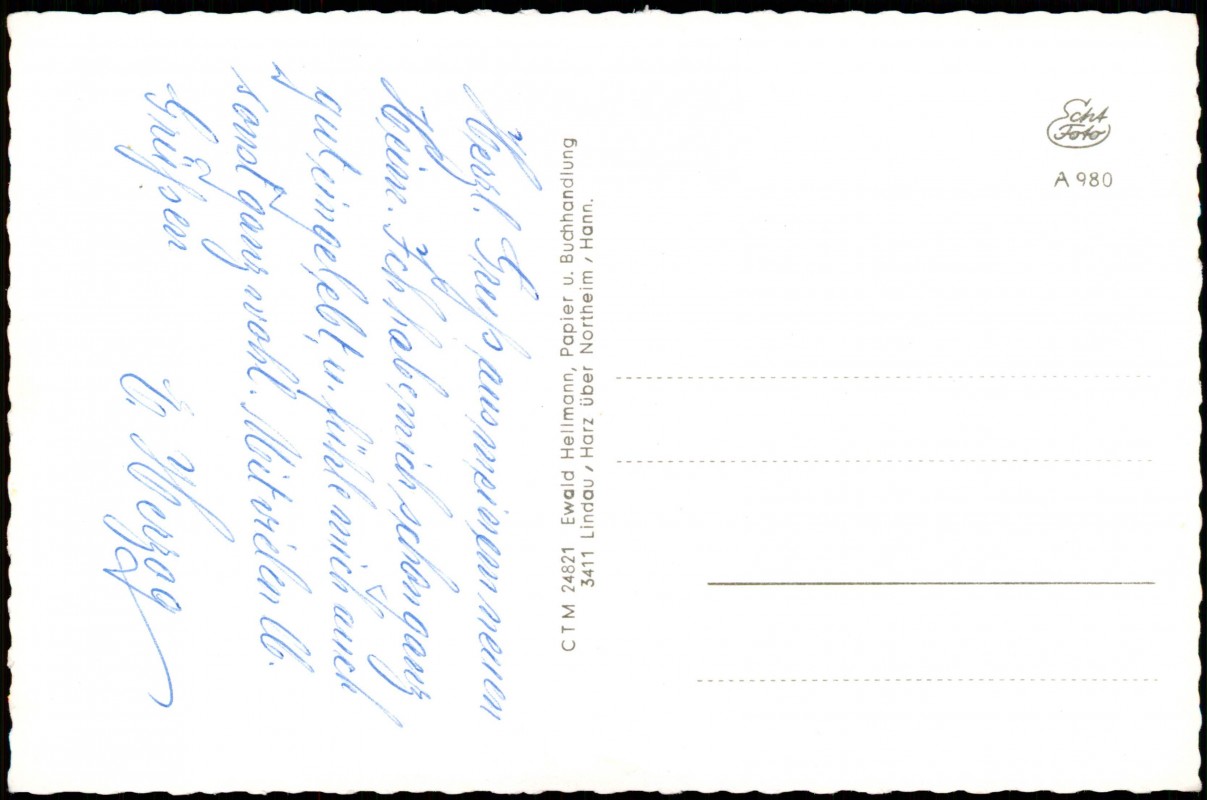 Herzl. Gruß aus meinem neuen
Heim. Ich habe mich schon ganz
gut eingelebt, u. fühle mich auch
sonst ganz wohl. Mit vielen lb.
Grüßen
E. Herzog
CTM 24821 Ewald Hellmann, Papier u. Buchhandlung
3411 Lindau / Harz über Northeim / Hann.
Echt
Foto
A 980